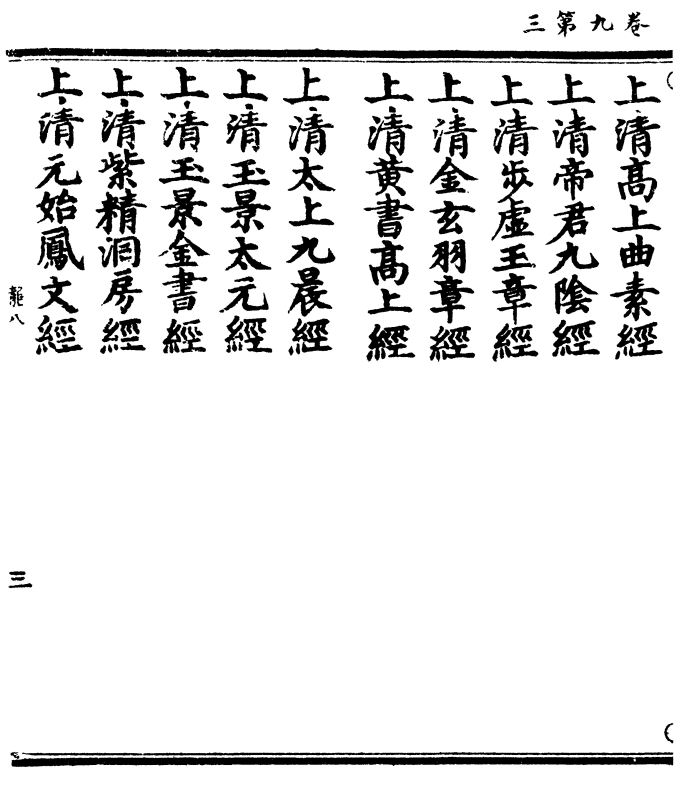 卷九第三
上清髙上曲素經
上清帝君九陰經
上清步虛王章經
上清金玄羽章經
上清黄書髙上經
上清太上九晨經
上清玉景太元經
上清玉景金書經
上清紫精洞房經
上清元始鳳文經
八
三